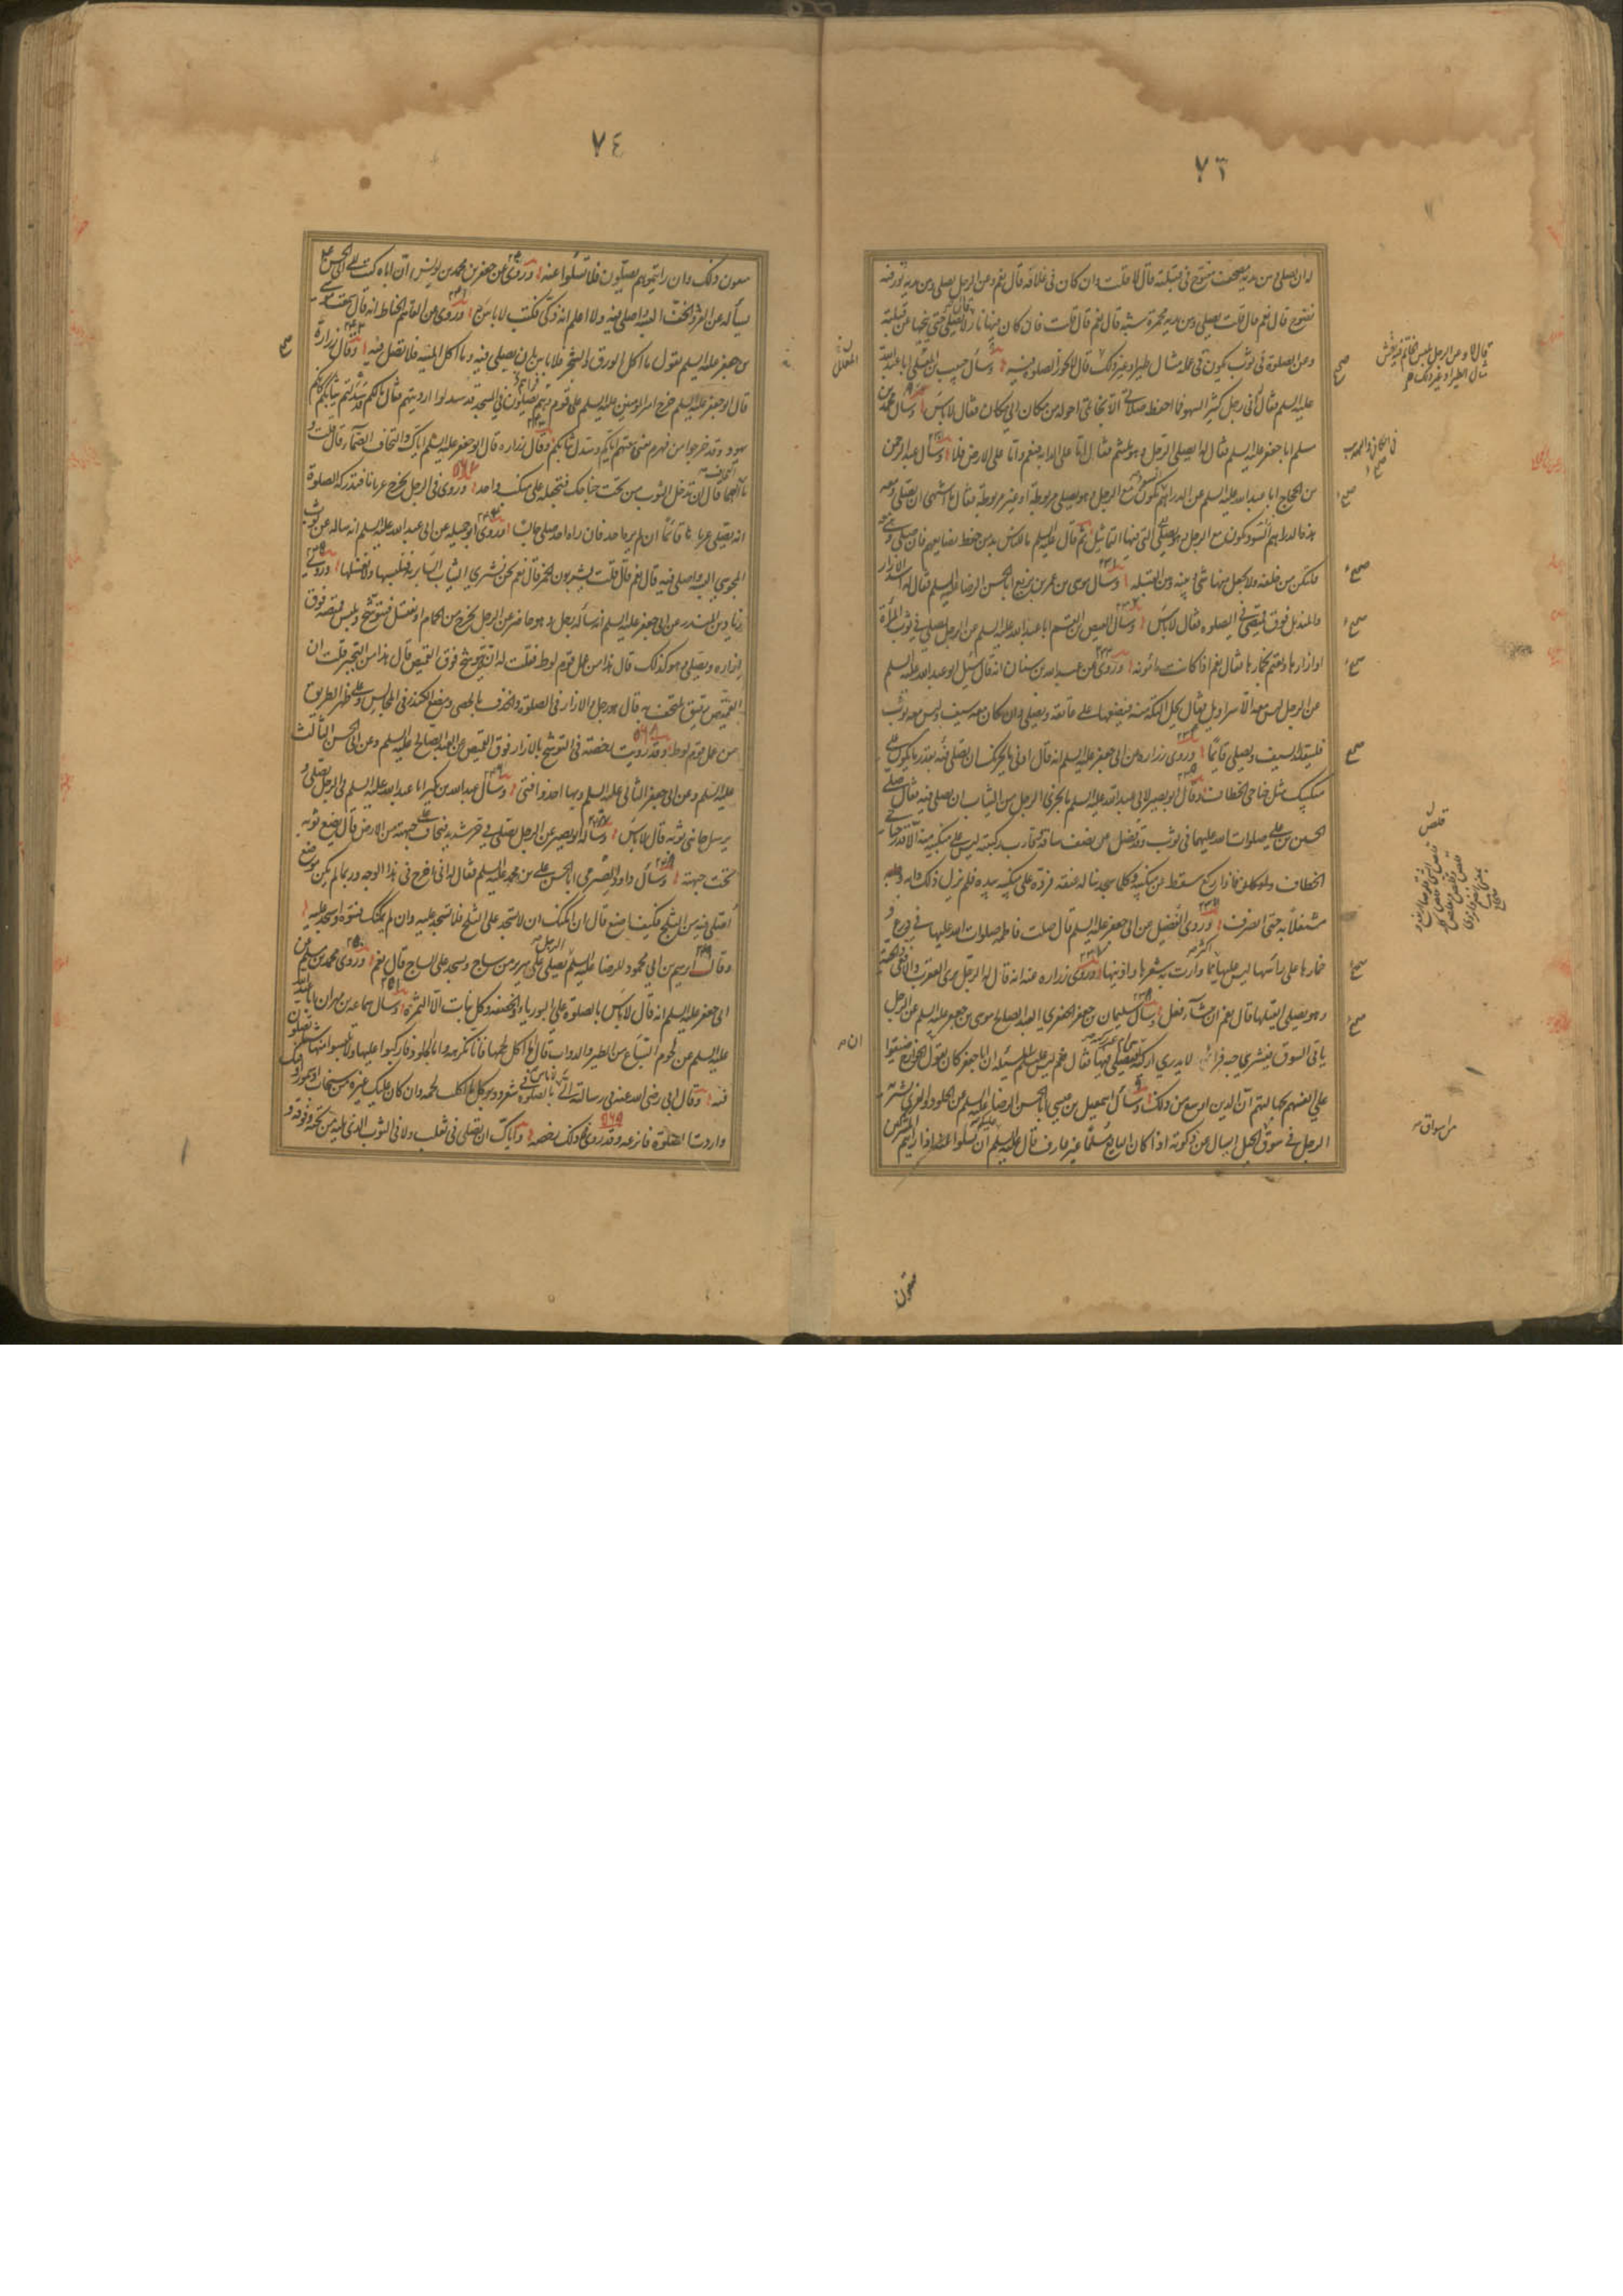 ٧٣
ان يصلى و بين يديه مصحف مفتوح فى قبلته قال لا قلت وان كان فى غلافه قال نعم وعن الرجل يصلى وبين يديه تور فيه
نضوح قال نعم قال قلت يصلى وبين يديه مجمرة شبه قال نعم قال قلت فان كان فيها نار قال لا يصلى حتى ينحيها عن قبلته
وعن الصلوة فى ثوب يكون فى علمه مثال طير او غير ذلك قال لا تجوز الصلوة فيه وسأل حبيب بن المعلى ابا عبد الله
عليه السلم فقال انى رجل كثير السهو فما احفظ صلاتى الا بخاتمى احوله من مكان الى مكان فقال لا بأس وسأل محمد بن
مسلم ابا جعفر عليه السلم فقال له ايصلى الرجل وهو متلثم فقال اما على الدابة فنعم واما على الارض فلا وسأل عبد الرحمن
بن الحجاج ابا عبد الله عليه السلم عن الدراهم السود تكون مع الرجل وهو يصلى مربوطة او غير مربوطة فقال ما اشتهى ان يصلى ومعه
هذه الدراهم التى فيها التماثيل ثم قال عليه السلم ما للناس بد من حفظ بضايعهم فان صلى وهى معه
فلتكن من خلفه ولا يجعل شيئا منها بينه وبين القبلة وسأل موسى بن عمر بن بزيع ابا الحسن الرضا عليه السلم فقال له اشد الازار
والمنديل فوق قميصى فى الصلوة فقال لا بأس وسأل العيص بن القسم ابا عبد الله عليه السلم عن الرجل يصلى فى ثوب المرأة
او ازارها ويعتم بخمارها فقال نعم اذا كانت مأمونة وروى عن عبد الله بن سنان انه قال سئل ابو عبد الله عليه السلم
عن الرجل ليس معه الا سراويل فقال يحل التكة منه فيضعها على عاتقه ويصلى وان كان معه سيف وليس معه ثوب
فليتقلد السيف ويصلى قائما وروى زرارة عن ابى جعفر عليه السلم انه قال ادنى ما يجزيك ان تصلى فيه بقدر ما يكون على
منكبيك مثل جناحى الخطاف وقال ابو بصير لابى عبد الله عليه السلم ما يجزى الرجل من الثياب ان يصلى فيه فقال صلى
الحسين بن على صلوات الله عليهما فى ثوب قد قلص عن نصف ساقه وقارب ركبتيه ليس على منكبيه منه الا قدر جناحى
الخطاف وكان اذا ركع سقط عن منكبيه وكلما سجد يناله عنقه فرده على منكبيه بيده فلم يزل ذلك دابه ودابه
مشتغلا به حتى انصرف وروى الفضيل عن ابى جعفر عليه السلم قال صلت فاطمة صلوات الله عليها فى درع و
خمارها على رأسها ليس عليها اكثر مما وارت به شعرها واذنيها وروى زرارة عنه انه قال له الرجل يرى العقرب والافعى والحية
وهو يصلى ايقتلها قال نعم ان شاء فعل وسأل سليمان بن جعفر الجعفرى العبد الصالح موسى بن جعفر عليه السلم عن الرجل
ياتى السوق فيشترى جبة فراء لا يدرى اذكية ام غير ذكية ايصلى فيها فقال نعم ليس عليكم المسئلة ان ابا جعفر كان يقول ان الخوارج ضيقوا
على انفسهم بجهالتهم ان الدين اوسع من ذلك وسأل اسمعيل بن عيسى ابا الحسن الرضا عليه السلم عن الجلود والفرى يشتريه
الرجل فى سوق الجبل ايسال عن ذكوته اذا كان البايع مسلما غير عارف قال عليه السلم عليكم ان تسئلوا عنه اذا رايتم المشركين
قال لا وعن الرجل يلبس الخاتم فيه نقش
مثال الطير او غير ذلك
من اسواق
يبيعون
٧٤
يبيعون ذلك وان رايتموهم يصلون فلا تسئلوا عنه وروى عن جعفر بن محمد بن يونس ان اباه كتب الى ابى الحسن عليه
يسأله عن الفرو والخف البسه واصلى فيه ولا اعلم انه ذكى فكتب لا بأس به وروى عن القاسم الخياط انه قال سمعت موسى
بن جعفر عليه السلم يقول ما اكل الورق والشجر فلا بأس بان يصلى فيه وما اكل الميتة فلا تصل فيه وقال زرارة
قال ابو جعفر عليه السلم خرج امير المومنين عليه السلم على قوم فراهم يصلون فى المسجد قد سدلوا ارديتهم فقال ما لكم قد سدلتم ثيابكم كانكم
يهود وقد خرجوا من فهرهم يعنى بيعتهم اياكم وسدل ثيابكم وقال زرارة قال ابو جعفر عليه السلم اياك والتحاف الصماء قال قلت و
ما الصما قال ان تدخل الثوب من تحت جناحك فتجعله على منكب واحد وروى فى الرجل يخرج عريانا فتدركه الصلوة
انه يصلى عريانا قائما ان لم يره احد فان راه احد صلى جالسا وروى ابو جميلة عن ابى عبد الله عليه السلم انه ساله عن ثوب
المجوسى البسه واصلى فيه قال نعم قال قلت يشربون الخمر قال نعم نحن نشترى الثياب السابرية فنلبسها ولا نغسلها وروى
زياد بن المنذر عن ابى جعفر عليه السلم انه سأله رجل وهو حاضر عن الرجل يخرج من الحمام او يغتسل فيتوشح ويلبس قميصه فوق
ازاره ويصلى وهو كذلك قال هذا من عمل قوم لوط فقلت له انه يتوشح فوق القميص قال هذا من التجبر قلت ان
القميص رقيق يلتحف به قال نعم وحل الازار فى الصلوة والخذف بالحصى ومضغ الكندر فى المجالس وعلى ظهر الطريق
من عمل قوم لوط وقد رويت رخصة فى التوشح بالازار فوق القميص عن العبد الصالح عليه السلم وعن ابى الحسن الثالث
عليه السلم وعن ابى جعفر الثانى عليه السلم وبها اخذ وافتى وسأل عبد الله بن بكير ابا عبد الله عليه السلم فى الرجل يصلى و
يرسل جانبى ثوبه قال لا بأس وساله ابو بصير عن الرجل يصلى فى حر شديد فيخاف على جبهته من الارض قال يضع ثوبه
تحت جبهته وسأل داود الصرمى ابا الحسن على بن محمد عليه السلم فقال انى اخرج فى هذا الوجه وربما لم يكن موضع
اصلى فيه من الثلج فكيف اصنع قال ان امكنك ان لا تسجد على الثلج فلا تسجد عليه وان لم يمكنك فسوه واسجد عليه
وقال ابرهيم بن ابى محمود للرضا عليه السلم الرجل يصلى على سرير من ساج ويسجد على الساج قال نعم وروى محمد بن مسلم عن
ابى جعفر عليه السلم انه قال لا بأس بالصلوة على البورياء والخصفة وكل نبات الا الثمرة وسأل سماعة بن مهران ابا عبد الله
عليه السلم عن لحوم السباع من الطير والدواب قال اما اكل لحمها فانا نكرهه واما الجلود فاركبوا عليها ولا تلبسوا منها شيئا تصلون
فيه وقال ابى رضى الله عنه فى رسالته الى لا بأس بالصلوة فى شعر ووبر كل ما اكلت لحمه وان كان عليك غيره من سنجاب او سمور او فنك
واردت الصلوة فانزعه وقد روى فى ذلك رخصة واياك ان تصلى فى ثعلب ولا فى الثوب الذى يليه من تحته وفوقه و